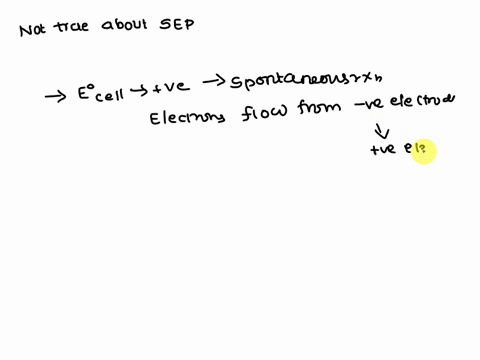 Not true about SEP
→ E°cell → +ve → Spontaneous rxn
Electrons flow from -ve electrode
↓
+ve el